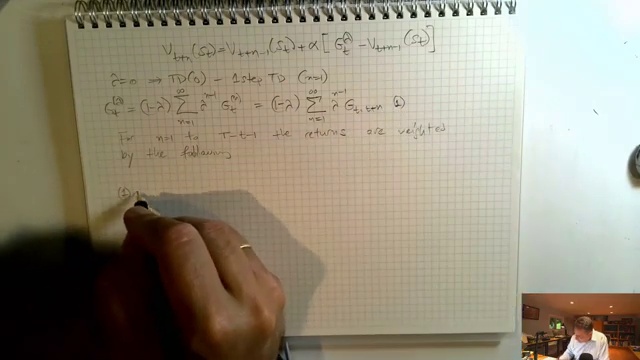 V_{t+n}(S_t) = V_{t+n-1}(S_t) + α [ G_t^{(λ)} - V_{t+n-1}(S_t) ]
λ=0 ⇒ TD(0) - 1 step TD (n=1)
G_t^{(λ)} = (1-λ) ∑_{n=1}^{∞} λ^{n-1} G_t^{(n)} = (1-λ) ∑_{n=1}^{∞} λ^{n-1} G_{t:t+n} (1)
For n=1 to T-t-1 the returns are weighted
by the following
(1)